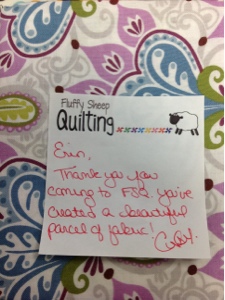 Fluffy Sheep
Quilting
Erin,
Thank you for
coming to FSQ. you've
created a beautiful
parcel of fabric!